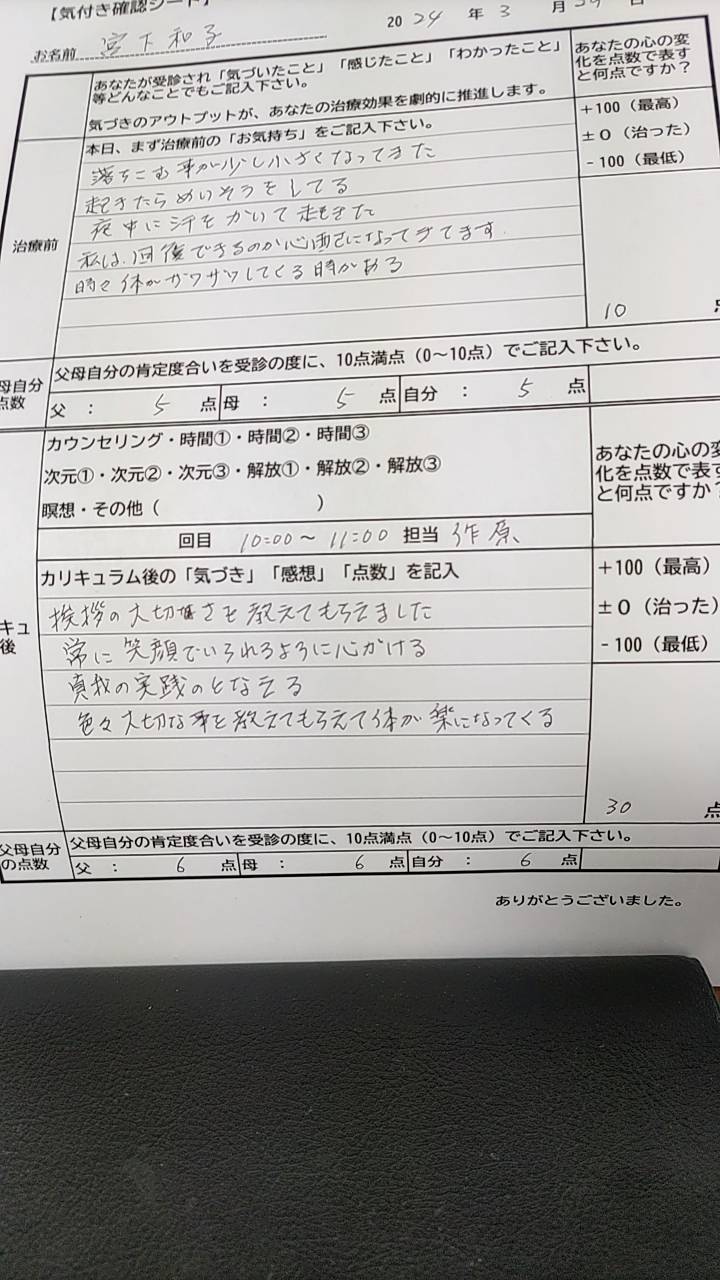 【気付き確認シート】
お名前 宮下和子 2024年3月29日
あなたが受診され「気づいたこと」「感じたこと」「わかったこと」
等どんなことでもご記入下さい。
気づきのアウトプットが、あなたの治療効果を劇的に推進します。
あなたの心の変
化を点数で表す
と何点ですか？
治療前
本日、まず治療前の「お気持ち」をご記入下さい。
落ちこむ事が少し小さくなってきた
起きたらめいそうをしてる
夜中に汗をかいて起きた
私は、回復できるのか心配になってきてます
時々体がザワザワしてくる時がある
+100（最高）
±0（治った）
-100（最低）
10 点
母自分
点数
父母自分の肯定度合いを受診の度に、10点満点（0～10点）でご記入下さい。
父： 5 点 母： 5 点 自分： 5 点
カウンセリング・時間①・時間②・時間③
次元①・次元②・次元③・解放①・解放②・解放③
瞑想・その他（ ）
回目 10:00～11:00 担当 作原
あなたの心の変
化を点数で表す
と何点ですか？
キュ
後
カリキュラム後の「気づき」「感想」「点数」を記入
挨拶の大切さを教えてもらえました
常に笑顔でいられるように心がける
真我の実践のとなえる
色々大切な事を教えてもらえて体が楽になってくる
+100（最高）
±0（治った）
-100（最低）
30 点
父母自分
の点数
父母自分の肯定度合いを受診の度に、10点満点（0～10点）でご記入下さい。
父： 6 点 母： 6 点 自分： 6 点
ありがとうございました。